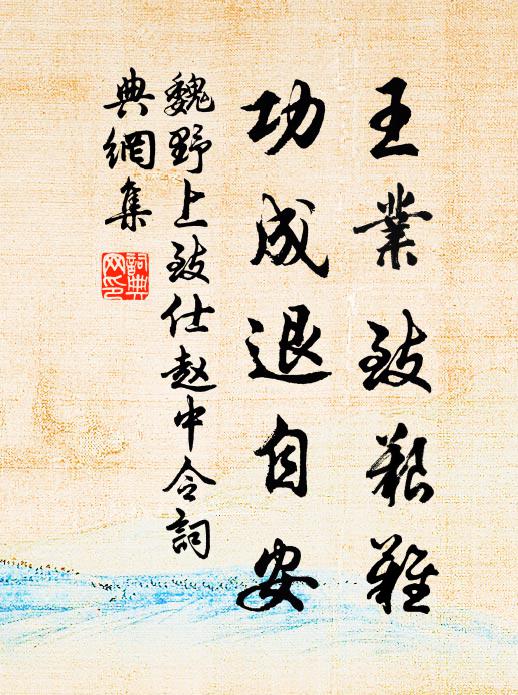 王業致艱難
功成退自安
魏野上致仕赵中令詞
典網集
詞典
网印